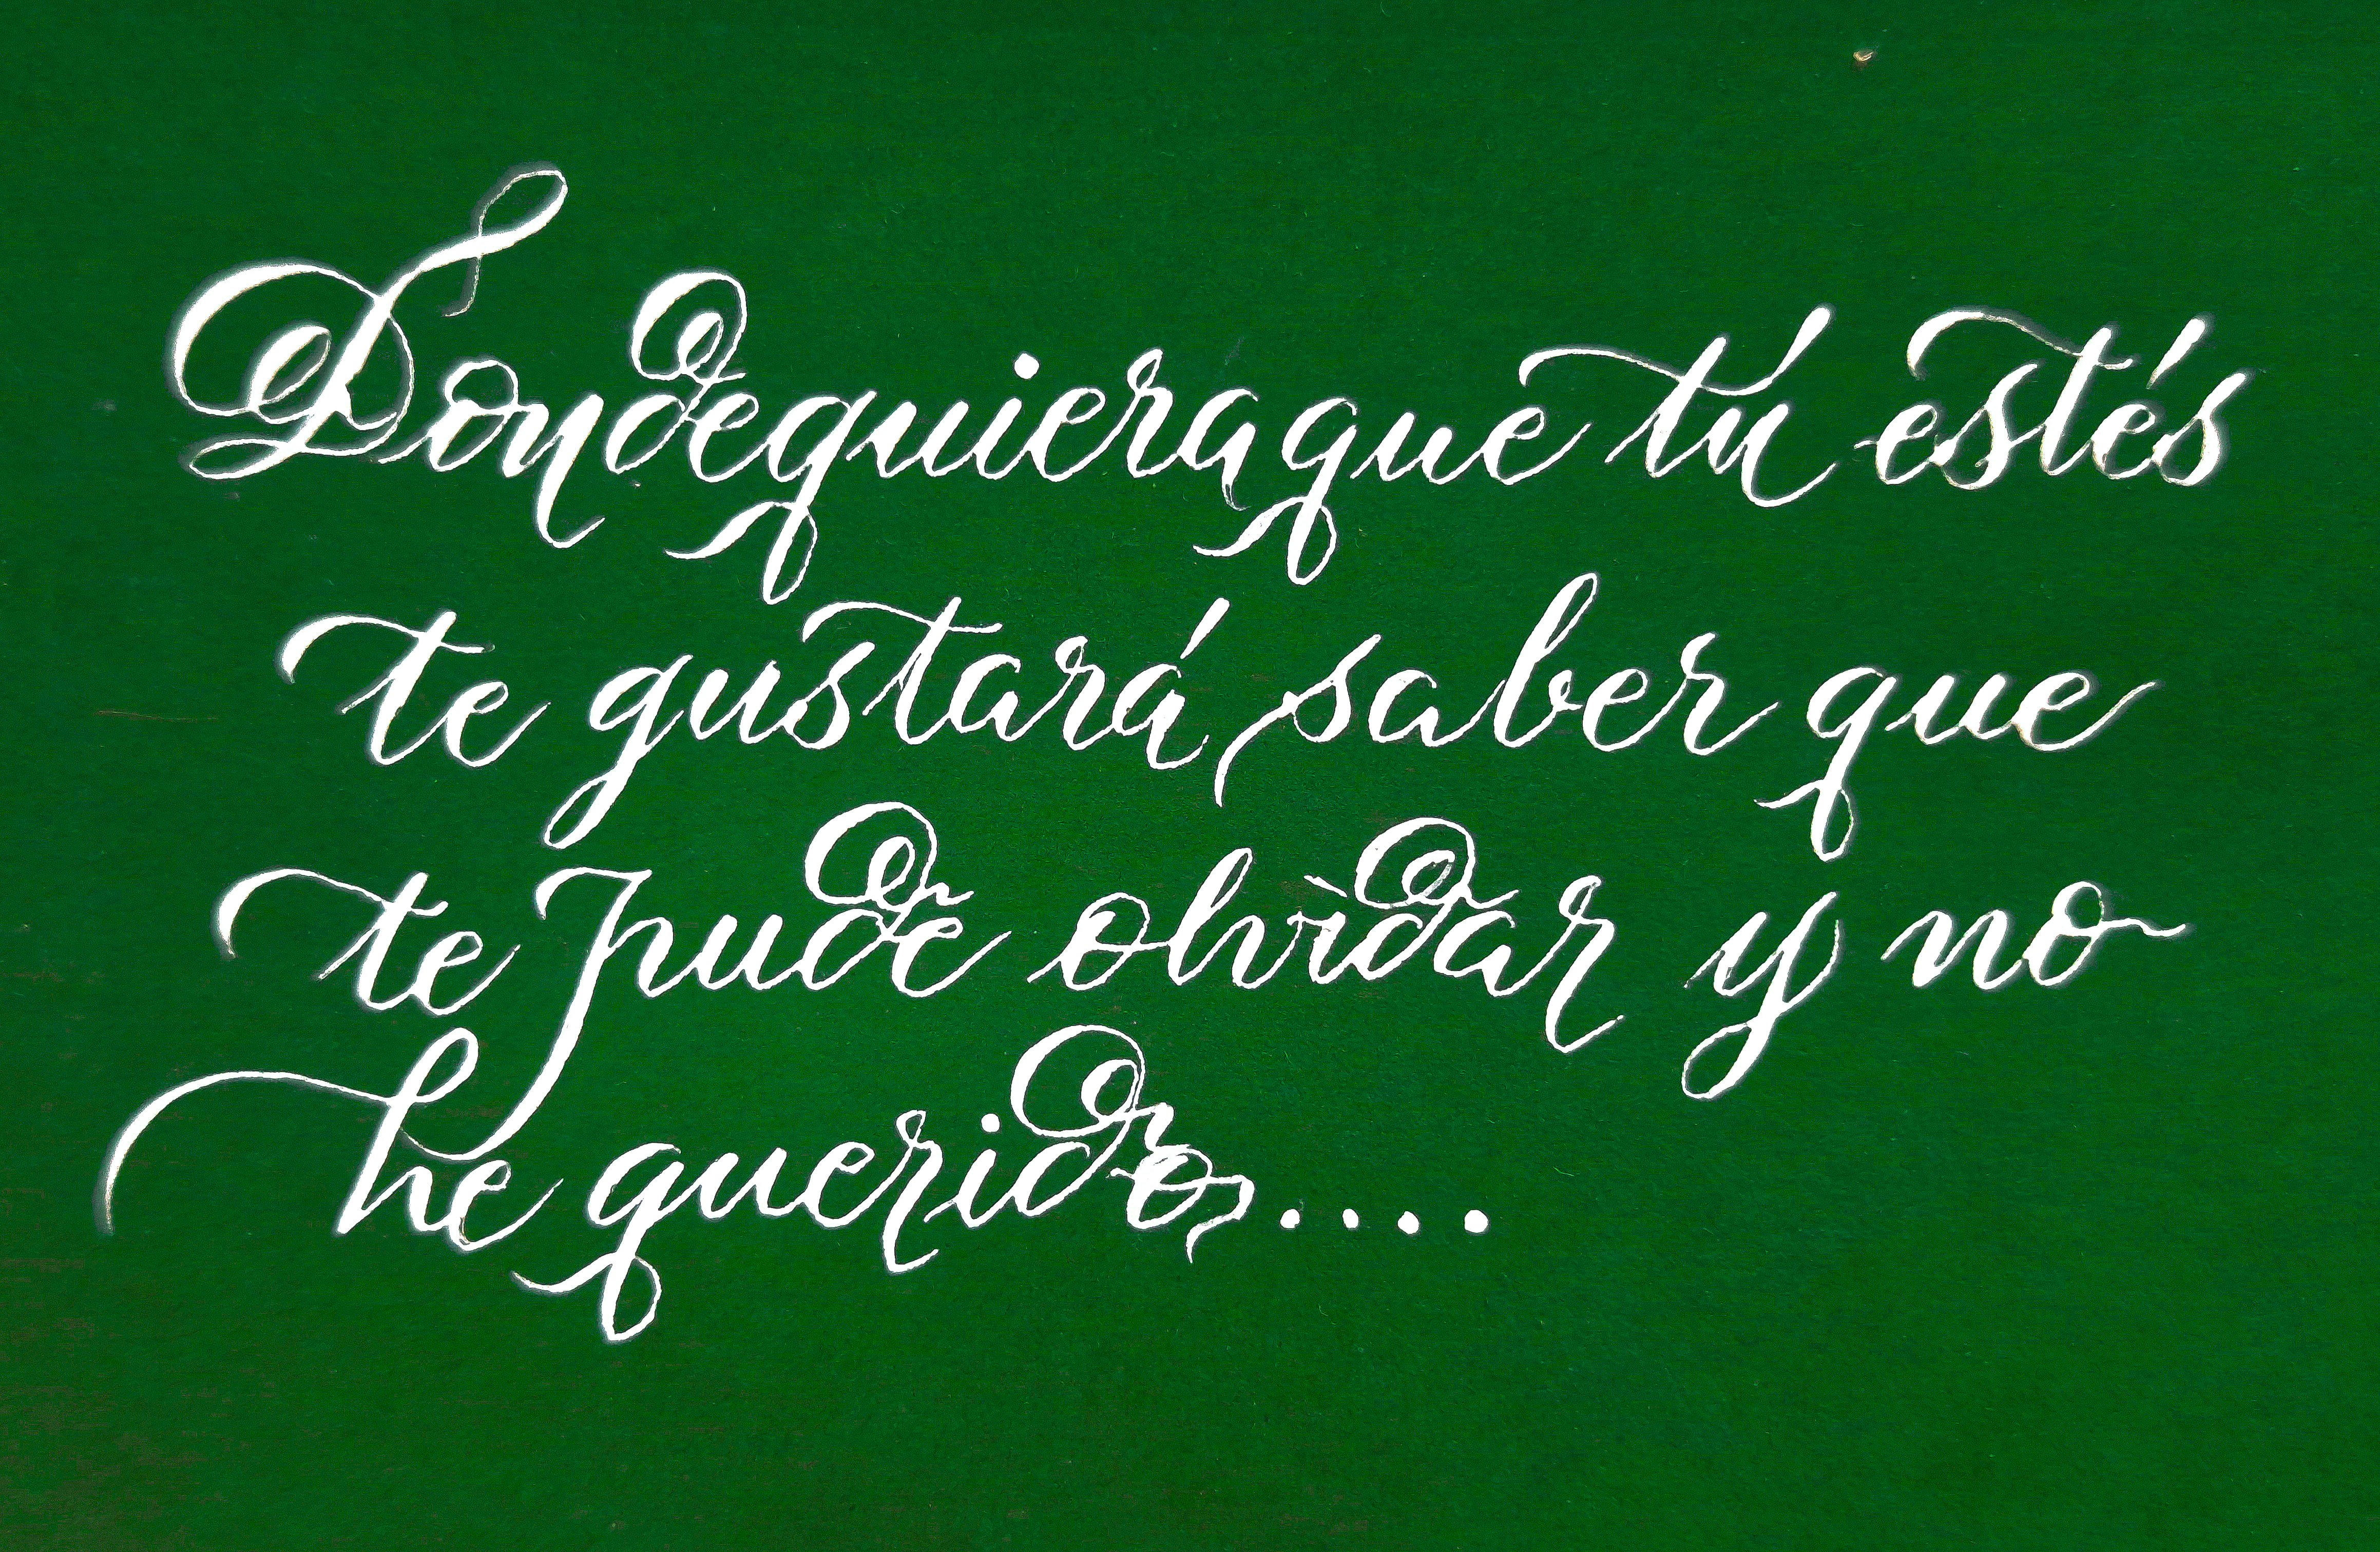 Dondequiera que tú estés
te gustará saber que
te pude olvidar y no
he querido....